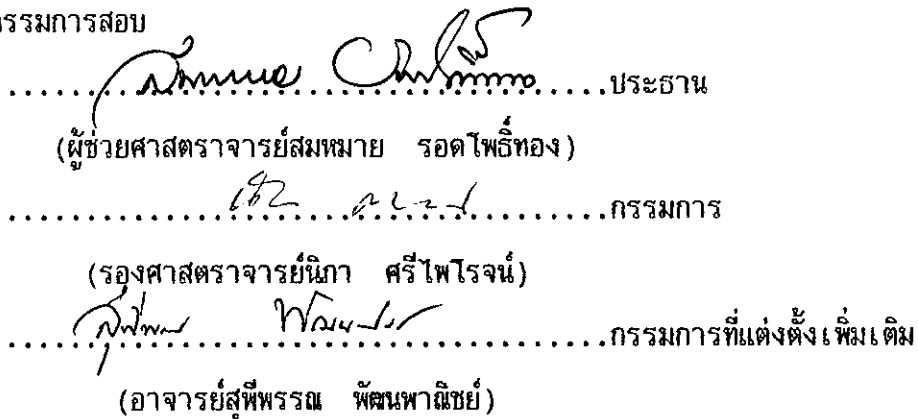 กรรมการสอบ
........................................ประธาน
(ผู้ช่วยศาสตราจารย์สมหมาย รอดโพธิ์ทอง)
........................................กรรมการ
(รองศาสตราจารย์นิภา ศรีไพโรจน์)
........................................กรรมการที่แต่งตั้งเพิ่มเติม
(อาจารย์สุพีพรรณ พัฒนพาณิชย์)